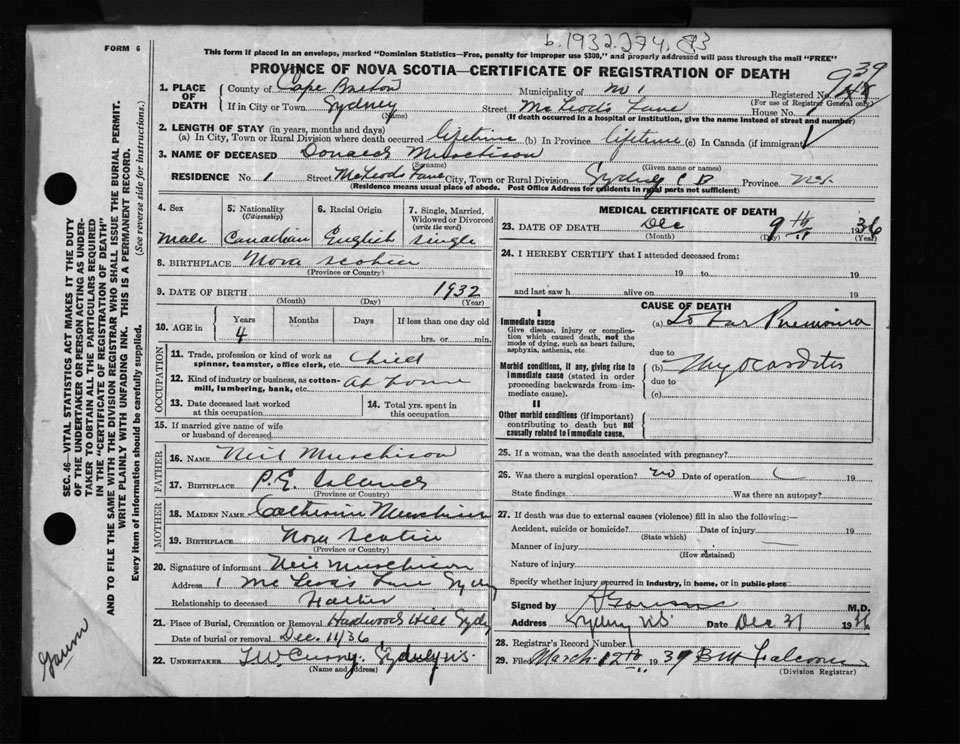 b.1932.274.83
FORM 6
This form if placed in an envelope, marked "Dominion Statistics—Free, penalty for improper use $300," and properly addressed will pass through the mail "FREE"
PROVINCE OF NOVA SCOTIA—CERTIFICATE OF REGISTRATION OF DEATH
939
1. PLACE OF DEATH
County of Cape Breton Municipality of No 1 Registered No.
(For use of Registrar General only)
If in City or Town Sydney Street McLeods Lane House No. 1
(Name) (If death occurred in a hospital or institution, give the name instead of street and number)
2. LENGTH OF STAY (in years, months and days)
(a) In City, Town or Rural Division where death occurred lifetime (b) In Province lifetime (c) In Canada (if immigrant)
3. NAME OF DECEASED Donald Murchison
(Surname) (Given name or names)
RESIDENCE No. 1 Street McLeods Lane City, Town or Rural Division Sydney C B Province N.S.
(Residence means usual place of abode. Post Office Address for residents in rural parts not sufficient)
4. Sex 5. Nationality (Citizenship) 6. Racial Origin 7. Single, Married, Widowed or Divorced (write the word)
male Canadian English single
8. BIRTHPLACE Nova Scotia
(Province or Country)
9. DATE OF BIRTH 1932
(Month) (Day) (Year)
10. AGE in Years Months Days If less than one day old
4 hrs. or min.
OCCUPATION
11. Trade, profession or kind of work as spinner, teamster, office clerk, etc. Child
12. Kind of industry or business, as cotton-mill, lumbering, bank, etc. At home
13. Date deceased last worked at this occupation 14. Total yrs. spent in this occupation
15. If married give name of wife or husband of deceased
FATHER
16. NAME Neil Murchison
17. BIRTHPLACE P.E. Island
(Province or Country)
MOTHER
18. MAIDEN NAME Catherine Murchison
19. BIRTHPLACE Nova Scotia
(Province or Country)
20. Signature of informant Neil Murchison
Address 1 McLeods Lane Sydney
Relationship to deceased Father
21. Place of Burial, Cremation or Removal Hardwood Hill Sydney
Date of burial or removal Dec. 11/36
22. UNDERTAKER T.W. Curry. Sydney N.S.
(Name and address)
MEDICAL CERTIFICATE OF DEATH
23. DATE OF DEATH Dec 9th 1936
(Month) (Day) (Year)
24. I HEREBY CERTIFY that I attended deceased from:
19 to 19
and last saw h alive on 19
CAUSE OF DEATH
I
Immediate cause
Give disease, injury or complication which caused death, not the mode of dying, such as heart failure, asphyxia, asthenia, etc.
(a) Lobar Pneumonia
due to
Morbid conditions, if any, giving rise to immediate cause (stated in order proceeding backwards from immediate cause).
(b) Myocarditis
due to
(c)
II
Other morbid conditions (if important) contributing to death but not causally related to immediate cause.
25. If a woman, was the death associated with pregnancy?
26. Was there a surgical operation? no Date of operation 19
State findings Was there an autopsy?
27. If death was due to external causes (violence) fill in also the following:—
Accident, suicide or homicide? Date of injury 19
(State which)
Manner of injury
(How sustained)
Nature of injury
Specify whether injury occurred in industry, in home, or in public place
Signed by M.D.
Address Sydney N.S. Date Dec 31 1936
28. Registrar's Record Number
29. Filed March 12th 1939 B M Falconer
(Division Registrar)
SEC. 46—VITAL STATISTICS ACT MAKES IT THE DUTY
OF THE UNDERTAKER OR PERSON ACTING AS UNDER-
TAKER TO OBTAIN ALL THE PARTICULARS REQUIRED
IN THE "CERTIFICATE OF REGISTRATION OF DEATH"
AND TO FILE THE SAME WITH THE DIVISION REGISTRAR WHO SHALL ISSUE THE BURIAL PERMIT.
WRITE PLAINLY WITH UNFADING INK. THIS IS A PERMANENT RECORD.
Every item of information should be carefully supplied. (See reverse side for instructions.)